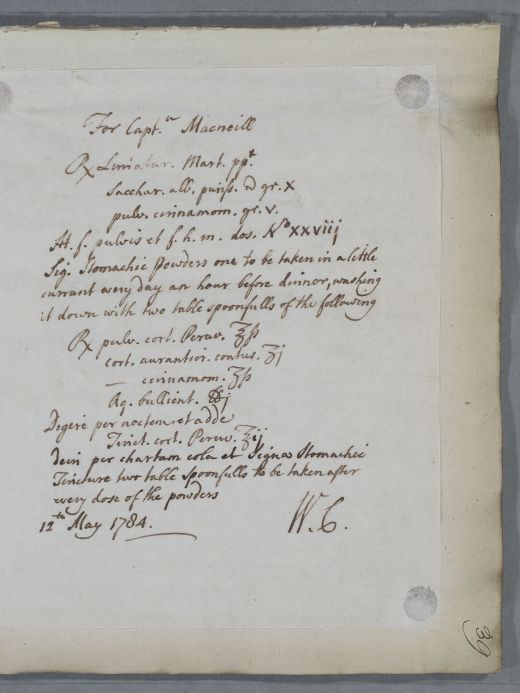 For Capt.n Macneill
Rx Limatur. Mart. ppt
Sacchar. alb. puriss. a gr. X
pulv. cinnamom. gr. v.
M. f. pulvis et f. h. m. dos. No XXVIIj
Sig. Stomachic powders one to be taken in a little
currant every day an hour before dinner, washing
it down with two table spoonfulls of the following
Rx pulv. cort. Peruv. ℥ß
cort. aurantior. contus. ʒj
— cinnamom. ʒß
Aq. bullient. ℔j
Digere per noctem et adde
Tinct. cort. Peruv. ℥ij
dein per chartam cola et Signa Stomachic
Tincture two table spoonfulls to be taken after
every dose of the powders
12th May 1784. W. C.